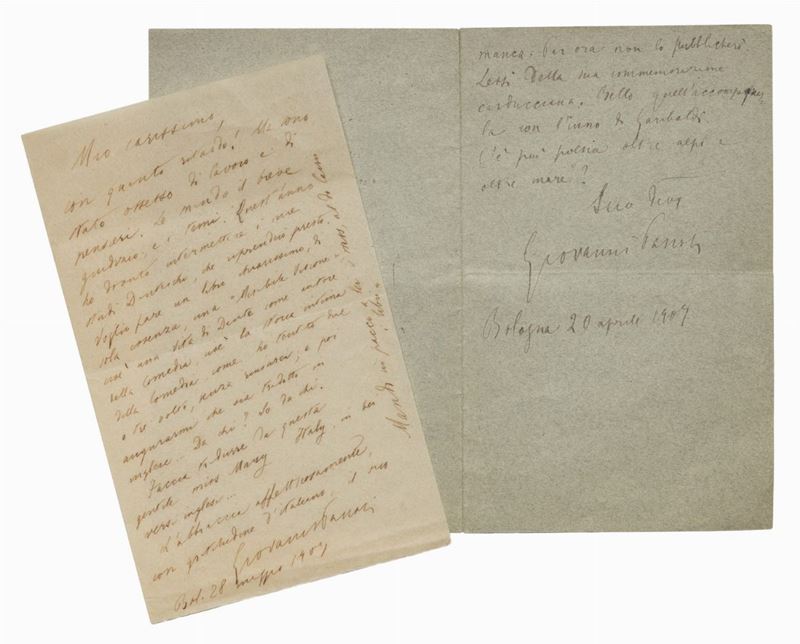 Mio carissimo,
con quanto ritardo! Ma sono
stato ossesso di lavoro e di
pensieri. Le mando il breve
giudizio e i temi. Quest'anno
ho dovuto intermettere i miei
studi Danteschi, che riprenderò presto.
Voglio fare un libro chiarissimo, di
sola essenza, una "Mirabile Visione"
cioè una vita di Dante come autore
della Comedia, cioè la storia intima
della Comedia, come ho tentato due
o tre volte, senza riuscirci; e poi
augurarmi che sia tradotto in
inglese... Da chi? So da chi.
Faccia tradurre da questa
gentile miss Mary Italy, in bei
versi inglesi...
L'abbraccia affettuosamente,
con gratitudine d'italiano, il suo
Giovanni Pascoli
Bol. 28 maggio 1907
Mando in pacco
libri
manca. Per ora non lo pubblicherei.
Lessi della sua commemorazione
carducciana. Bello quell'accompagnar
la con l'inno di Garibaldi.
C'è più poesia oltre alpi e
oltre mare?
Suo dev.
Giovanni Pascoli
Bologna 20 aprile 1907